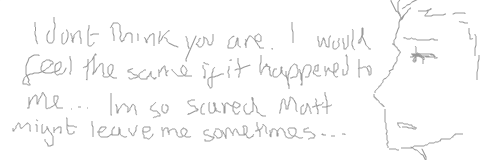 I dont think you are. I would
feel the same if it happened to
me... Im so scared Matt
might leave me sometimes...